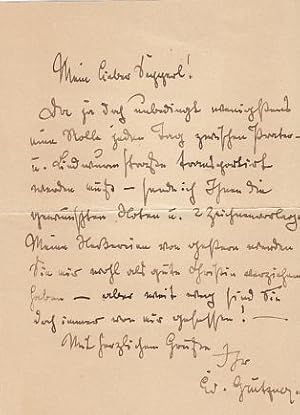 Mein lieber Sepperl!
Da ja doch unbedingt wenigstens
eine Rolle jeden Tag zwischen Prater-
u. Lindwurmstraße transportirt
werden muß – sende ich Ihnen die
gewünschten Noten u. 2 Zeichenvorlagen
Meine von gestern werden
Sie mir wohl als gute Christin verziehen
haben – aber weit weg sind Sie
doch immer von mir gesessen! –
Mit herzlichem Gruße
Ihr
Ed. Grützner